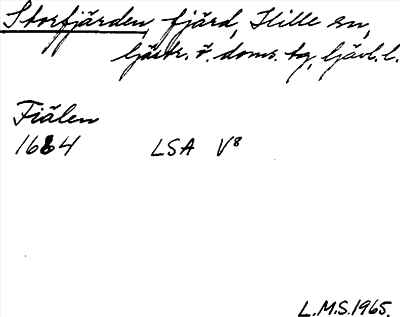 Storfjärden, fjärd, Hille sn,
Gästr. ö. doms. tg, Gävl. l.
Fiälen
1664 LSA V⁸
L.M.S. 1965.